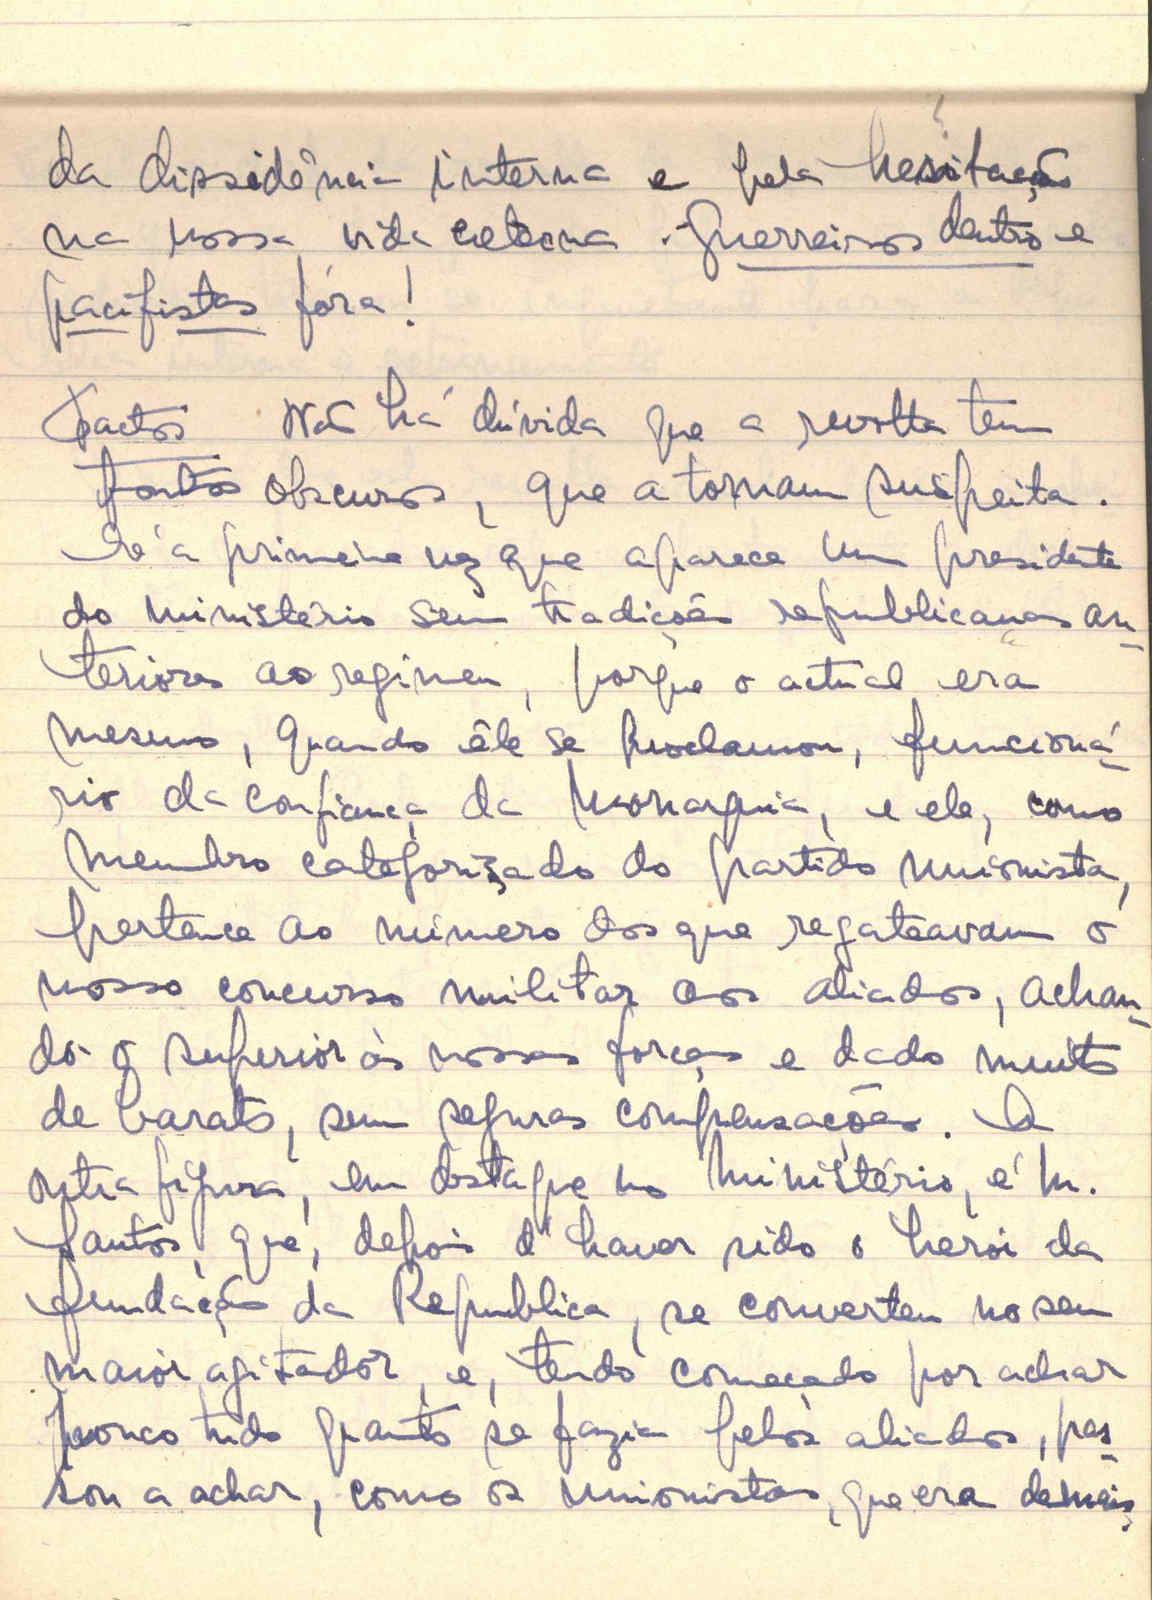 da dissidência interna e pela hesitação
na nossa vida externa. Guerreiros dentro e
pacifistas fóra!
Factos Não há dúvida que a revolta tem
pontos obscuros, que a tornam suspeita.
É a primeira vez que aparece um presidente
do ministério sem tradições republicanas an-
teriores ao regimen, porque o actual era
mesmo, quando êle se proclamou, funcioná-
rio da confiança da Monarquia, e ele, como
membro categorizado do partido unionista,
pertence ao número dos que regateavam o
nosso concurso militar aos aliados, achan-
do-o superior às nossas forças e dado muito
de barato, sem seguras compensações. A
outra figura, em destaque no Ministério, é M.
Santos, que, depois d'haver sido o herói da
fundação da Republica, se converteu no seu
maior agitador, e, tendo começado por achar
pouco tudo quanto se fazia pelos aliados, pas-
sou a achar, como os unionistas, que era demais,